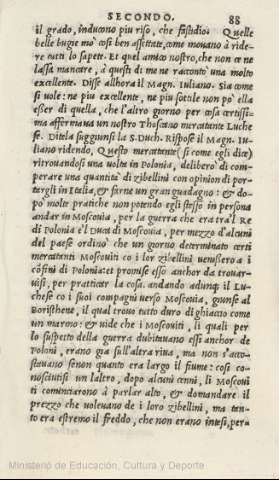 SECONDO. 88
il grado, inducono piu riso, che fastidio. Quelle
belle bugie mo' cosi ben assettate, come movano à ride-
re tutti lo sapete. Et quel amico nostro, che non ce ne
lassa mancare, à questi di me ne raccontò una molto
excellente. Disse allhora il Magn. Iuliano. Sia come
si vole: ne piu excellente, ne piu sottile non po' ella
esser di quella, che l'altro giorno per cosa certissi-
ma affermava un nostro Thoscano mercatante Luche
se. Ditela suggiunse la S. Duch. Rispose il Magn. Iu-
liano ridendo, Questo mercatante (si come egli dice)
ritrovandosi una volta in Polonia, deliberò di com-
perare una quantità di zibellini con opinion di por-
targli in Italia, & farne un gran guadagno: & do-
pò molte pratiche non potendo egli stesso in persona
andar in Moscovia, per la guerra che era tra'l Re
di Polonia e'l Duca di Moscovia, per mezzo d'alcuni
del paese ordinò che un giorno determinato certi
mercatanti Moscoviti co i lor zibellini venessero a i
cōfini di Polonia: et promise esso anchor da trovar-
visi, per pratticar la cosa. andando adunq; il Lu-
chese co i suoi compagni verso Moscovia, giunse al
Boristhene, il qual trovò tutto duro di ghiaccio come
un marmo: & vide che i Moscoviti, li quali per
lo suspetto della guerra dubitavano essi anchor de
Poloni, erano gia sull'altra riva, ma non s'acco-
stavano senon quanto era largo il fiume: cosi co-
nosciutisi un laltro, dopo alcuni cenni, li Moscovi
ti cominciarono à parlar alto, & domandare il
prezzo che volevano de i loro zibellini, ma tan-
to era estremo il freddo, che non erano intesi, perq
Ministerio de Educación, Cultura y Deporte